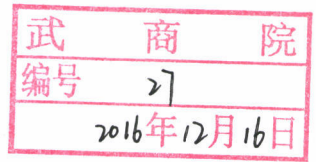 武 商 院
编号 27
2016年12月16日